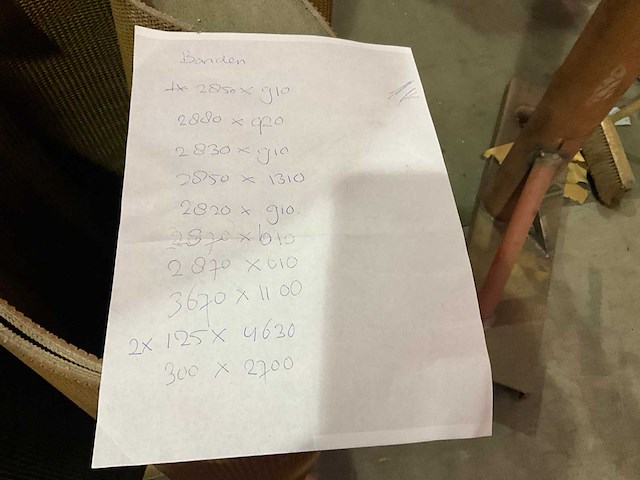 Banden
1x 2850 x 910
2880 x 920
2830 x 910
2850 x 1310
2820 x 910
2870 x 610
2870 x 610
3670 x 1100
2x 125 x 4630
300 x 2700